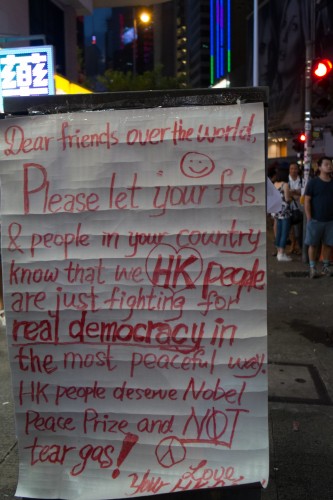 Dear friends over the world,
Please let your fds
& people in your country
know that we HK people
are just fighting for
real democracy in
the most peaceful way.
HK people deserve Nobel
Peace Prize and NOT
tear gas!
Love
Your